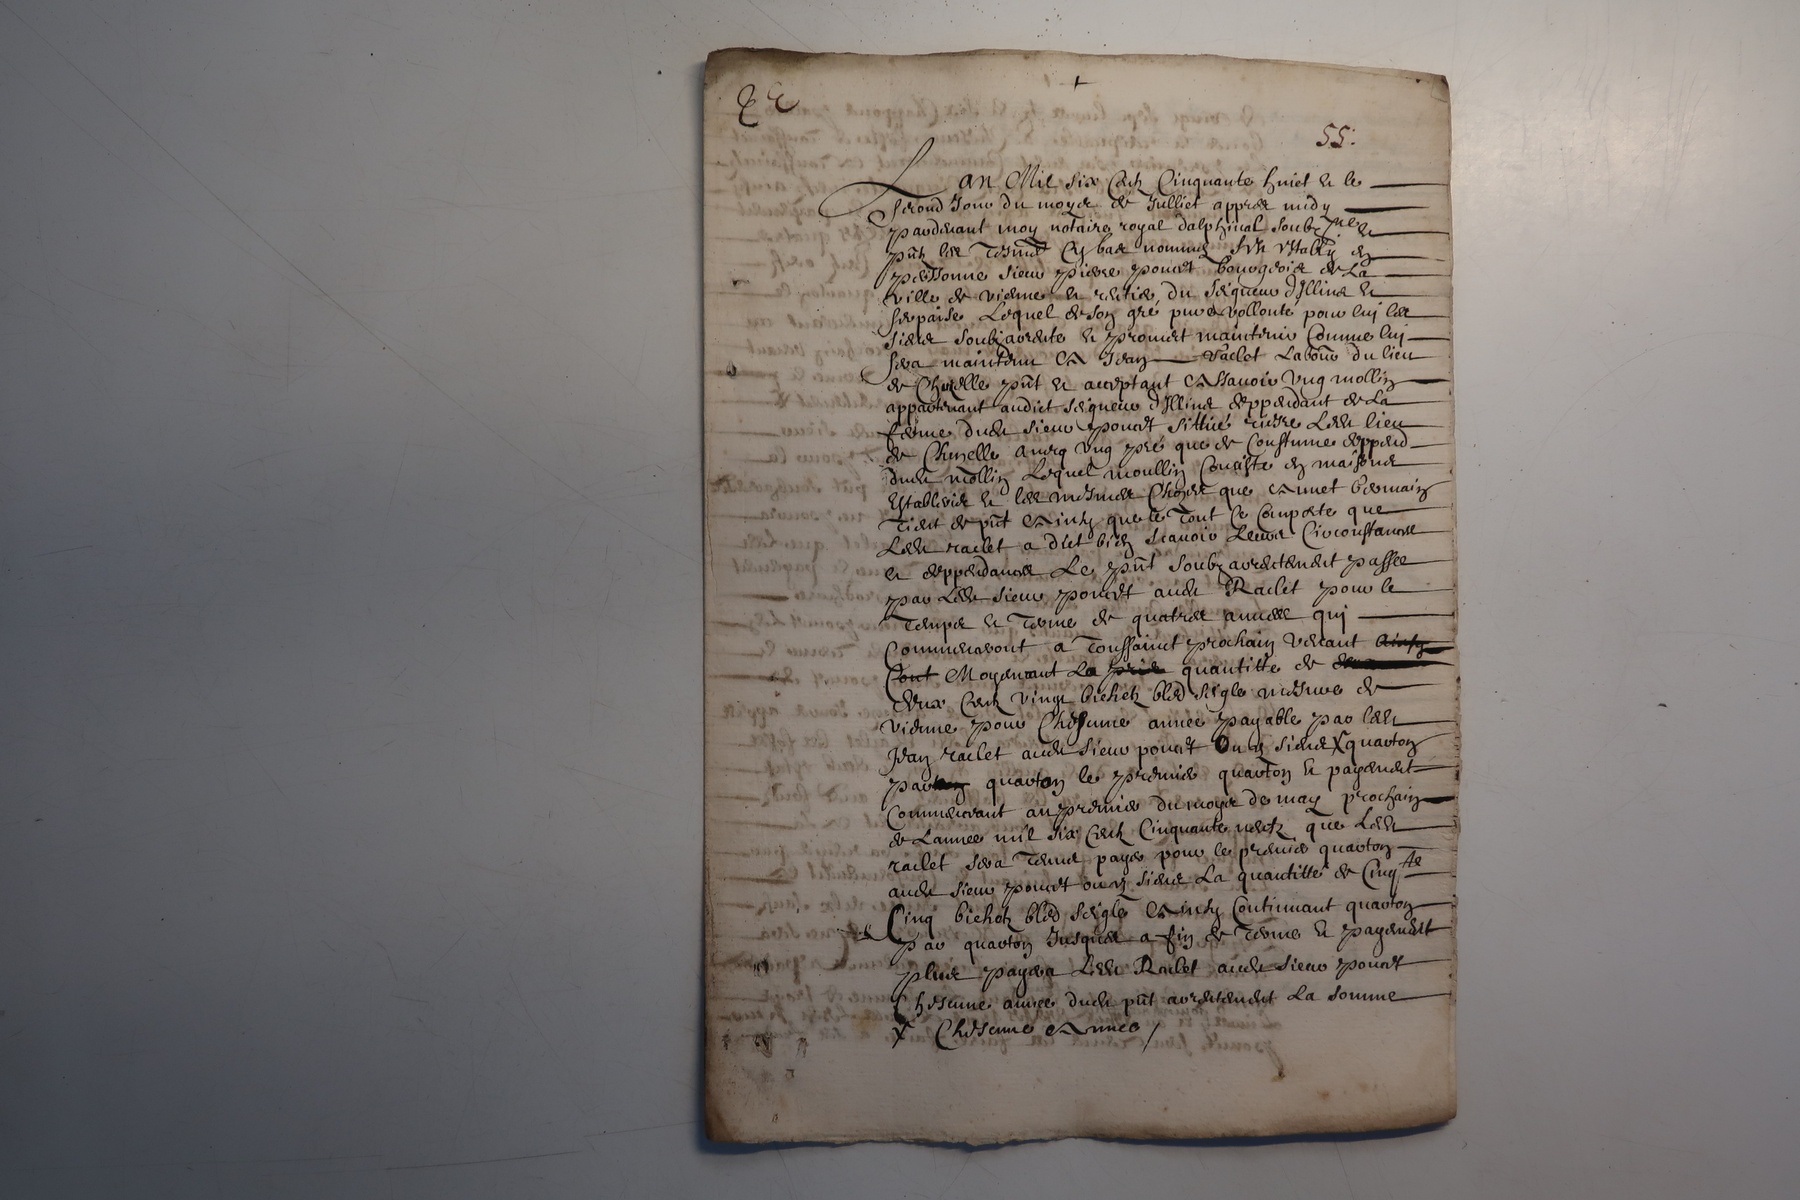 55:
Lan Mil six Centz Cinquante huict & le
second Jour du moys de Julliet appres midy
pardevant moy notaire royal dalphinal soubz.ne &
pnt les tesmoings cy bas nommes sest estably en
personne sieur pierre ponset bourgeois de La
ville de vienne & rentier du seigneur d'Illins &
Lequel de son gre pure vollonté pour luy les
siens soubzarrente & promet maintenir Comme luy
sera maintenu A Jean Raclet Labour du lieu
de Chuzelle pnt & acceptant A scavoir ung mollin
appartenant audict seigneur d'Illins deppendant de La
ferme dud sieur ponset sittué riere Led lieu
de Chuzelle avec ung pré que de Coustume deppend
dud mollin Lequel moullin Consiste en maisons
establerie & les mesmes Choses que
tient de pnt Ainsy que le tout se Comporte que
Led raclet a dict bien scavoir Leurs Circonstances
& deppendances Le pnt soubzarrentement passee
par Led sieur ponset aud Raclet pour le
temps & terme de quatres annees qui
Commenceront a Toussainct prochain venant
Moyennant La quantitte de
deux Centz vingt bichetz bled seigle mesure de
vienne pour Chascune annee payable par led
Jean raclet aud sieur ponset Ou es siens X quarton
par quarton le premier quarton & payement
Commencant au premier du moys de may prochain
de Lannee mil six Centz Cinquante neufz que Led
raclet sera tenu payer pour le premier quarton
aud sieur ponset ou es siens La quantitté de Cinq.te
Cinq bichetz bled seigle Ainsy Continuant quarton
par quarton Jusques a fin de terme & payement
plus payera Led Raclet aud sieur ponset
Chascune annee dud pnt arrentement La somme
X Chascune Annee /